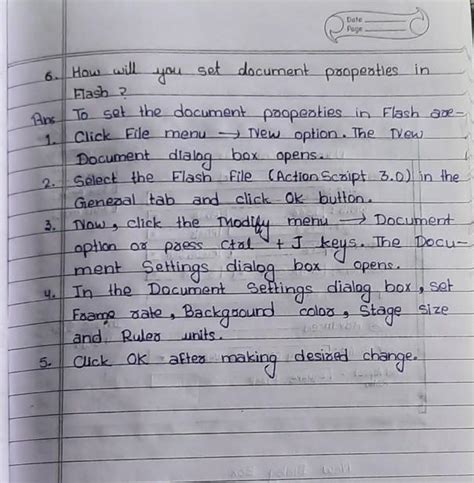 Date
Page
6. How will you set document properties in
Flash ?
Ans To set the document properties in Flash are-
1. Click File menu → New option. The New
Document dialog box opens.
2. Select the Flash File (ActionScript 3.0) in the
General tab and click OK button.
3. Now, click the Modify menu → Document
option or press Ctrl + J keys. The Docu-
ment Settings dialog box opens.
4. In the Document Settings dialog box, set
Frame rate, Background color, Stage size
and Ruler units.
5. Click OK after making desired change.